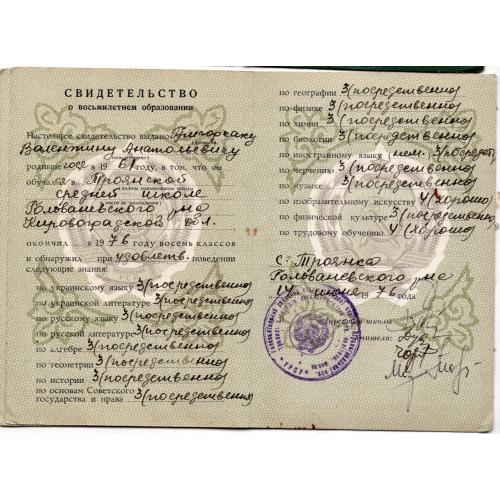 СВИДЕТЕЛЬСТВО
о восьмилетнем образовании
Настоящее свидетельство выдано Григорчаку
Валентину Анатольевичу
родившемуся в 1961 году, в том, что он
обучался в Троянской
средней школе
Голованевского р-на
Кировоградской обл.
окончил в 1976 году восемь классов
и обнаружил при удовлетв. поведении
следующие знания:
по украинскому языку 3 (посредственно)
по украинской литературе 3 (посредственно)
по русскому языку 3 (посредственно)
по русской литературе 3 (посредственно)
по алгебре 3 (посредственно)
по геометрии 3 (посредственно)
по истории 3 (посредственно)
по основам Советского
государства и права 3 (посредственно)
по географии 3 (посредственно)
по физике 3 (посредственно)
по химии 3 (посредственно)
по биологии 3 (посредственно)
по иностранному языку нем. 3 (посредст.
по черчению 3 (посредственно)
по музыке 3 (посредственно)
по изобразительному искусству 4 (хорошо)
по физической культуре 3 (посредственно)
по трудовому обучению 4 (хорошо)
с. Троянка
Голованевского р-на
14 июня 1976 года
Директор школы